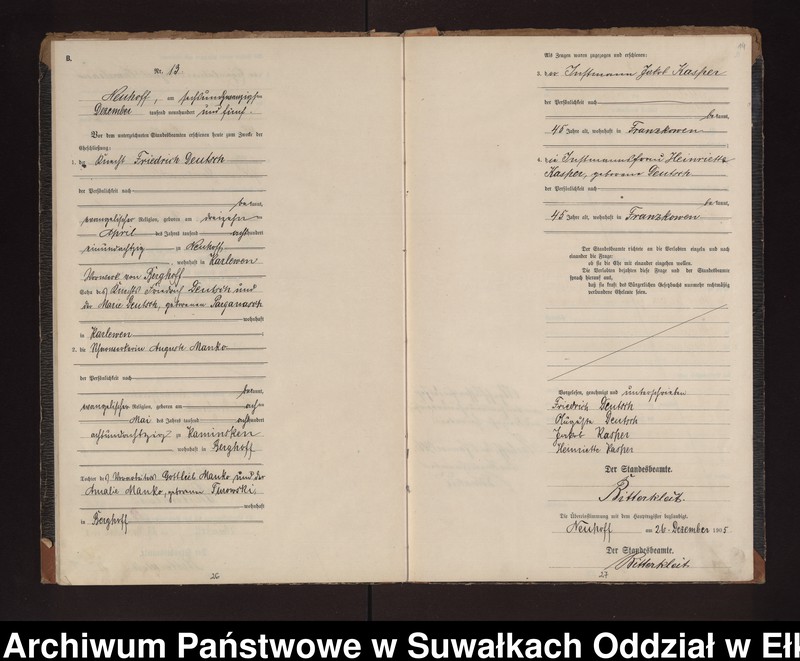 8.
Nr. 13.
Neuhoff, am sechsundzwanzigsten
Dezember tausend neunhundert und fünf.
Vor dem unterzeichneten Standesbeamten erschienen heute zum Zwecke der
Eheschließung:
1. der Knecht Friedrich Deutsch
der Persönlichkeit nach
be kannt,
evangelischer Religion, geboren am dreizehn
ten April des Jahres tausend achthundert
einundachtzig zu Neuhoff,
, wohnhaft in Karlewen
Vorwerk von Berghoff
Sohn des Knechts Friedrich Deutsch und
der Marie Deutsch, geborenen
wohnhaft
in Karlewen ;
2. die Auguste Manko
der Persönlichkeit nach
be kannt,
evangelischer Religion, geboren am ach
ten Mai des Jahres tausend achthundert
achtundachtzig zu Kaminsken
, wohnhaft in Berghoff
Tochter des Vorarbeiters Gottlieb Manko und der
Amalie Manko, geborenen
wohnhaft
in Berghoff
26
Als Zeugen waren zugezogen und erschienen:
3. der Instmann Jakob Kasper
der Persönlichkeit nach
be kannt,
45 Jahre alt, wohnhaft in Franzkowen
;
4. die Instmannsfrau Heinriette
Kasper, geborene Deutsch
der Persönlichkeit nach
be kannt,
45 Jahre alt, wohnhaft in Franzkowen
Der Standesbeamte richtete an die Verlobten einzeln und nach
einander die Frage:
ob sie die Ehe mit einander eingehen wollen.
Die Verlobten bejahten diese Frage und der Standesbeamte
sprach hierauf aus,
daß sie kraft des Bürgerlichen Gesetzbuchs nunmehr rechtmäßig
verbundene Eheleute seien.
Vorgelesen, genehmigt und unterschrieben
Friedrich Deutsch
Auguste Deutsch
Jakob Kasper
Heinriette Kasper
Der Standesbeamte.
Ritterkleit.
Die Übereinstimmung mit dem Hauptregister beglaubigt.
Neuhoff am 26. Dezember 1905
Der Standesbeamte.
Ritterkleit.
27
Archiwum Państwowe w Suwałkach Oddział w Ełk